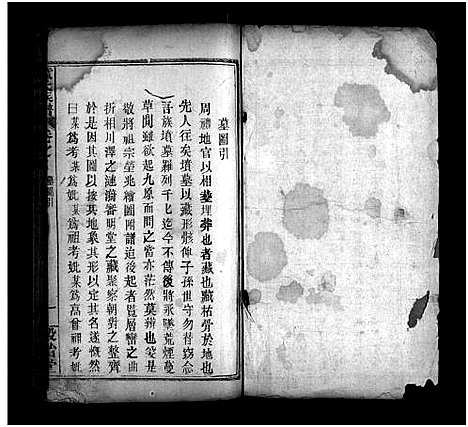 墓圖引
周禮地官以相葬埋葬也者藏也藏枯骨於地也
先人往矣墳墓以藏形骸俾子孫世守勿替竊念
吾族墳墓難列千七迄今不傳後將永墜荒煙蔓
草間雖欲起九原而問之當亦茫然莫辨也爰是
敬將祖宗塋兆繪圖附譜迨後起者覧層巒之曲
折相川澤之漣漪審明堂之藏聚察朝對之整齊
於是因其圖以按其地象其形以定其名遂慨然
曰某為考某為妣某為祖考妣某為高曾祖考妣
墓圖引
一